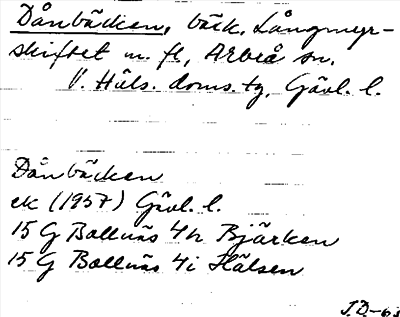 Dånbäcken, bäck, Långmyr-
skiftet m. fl, Arbrå sn.
V. Häls. doms. tg, Gävl. l.
Dånbäcken
ek (1957) Gävl. l.
15 G Bollnäs 4h Bjärken
15 G Bollnäs 4i Hälsen
J.D-63